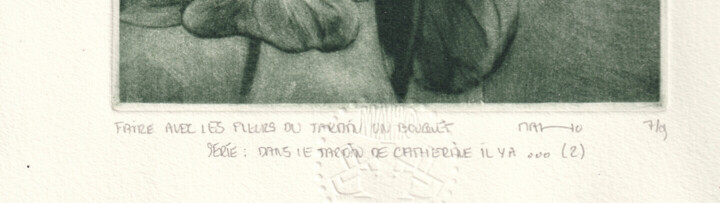 FAIRE AVEC LES FLEURS DU JARDIN UN BOUQUET 7/9
SÉRIE : DANS LE JARDIN DE CATHERINE IL Y A ... (2)